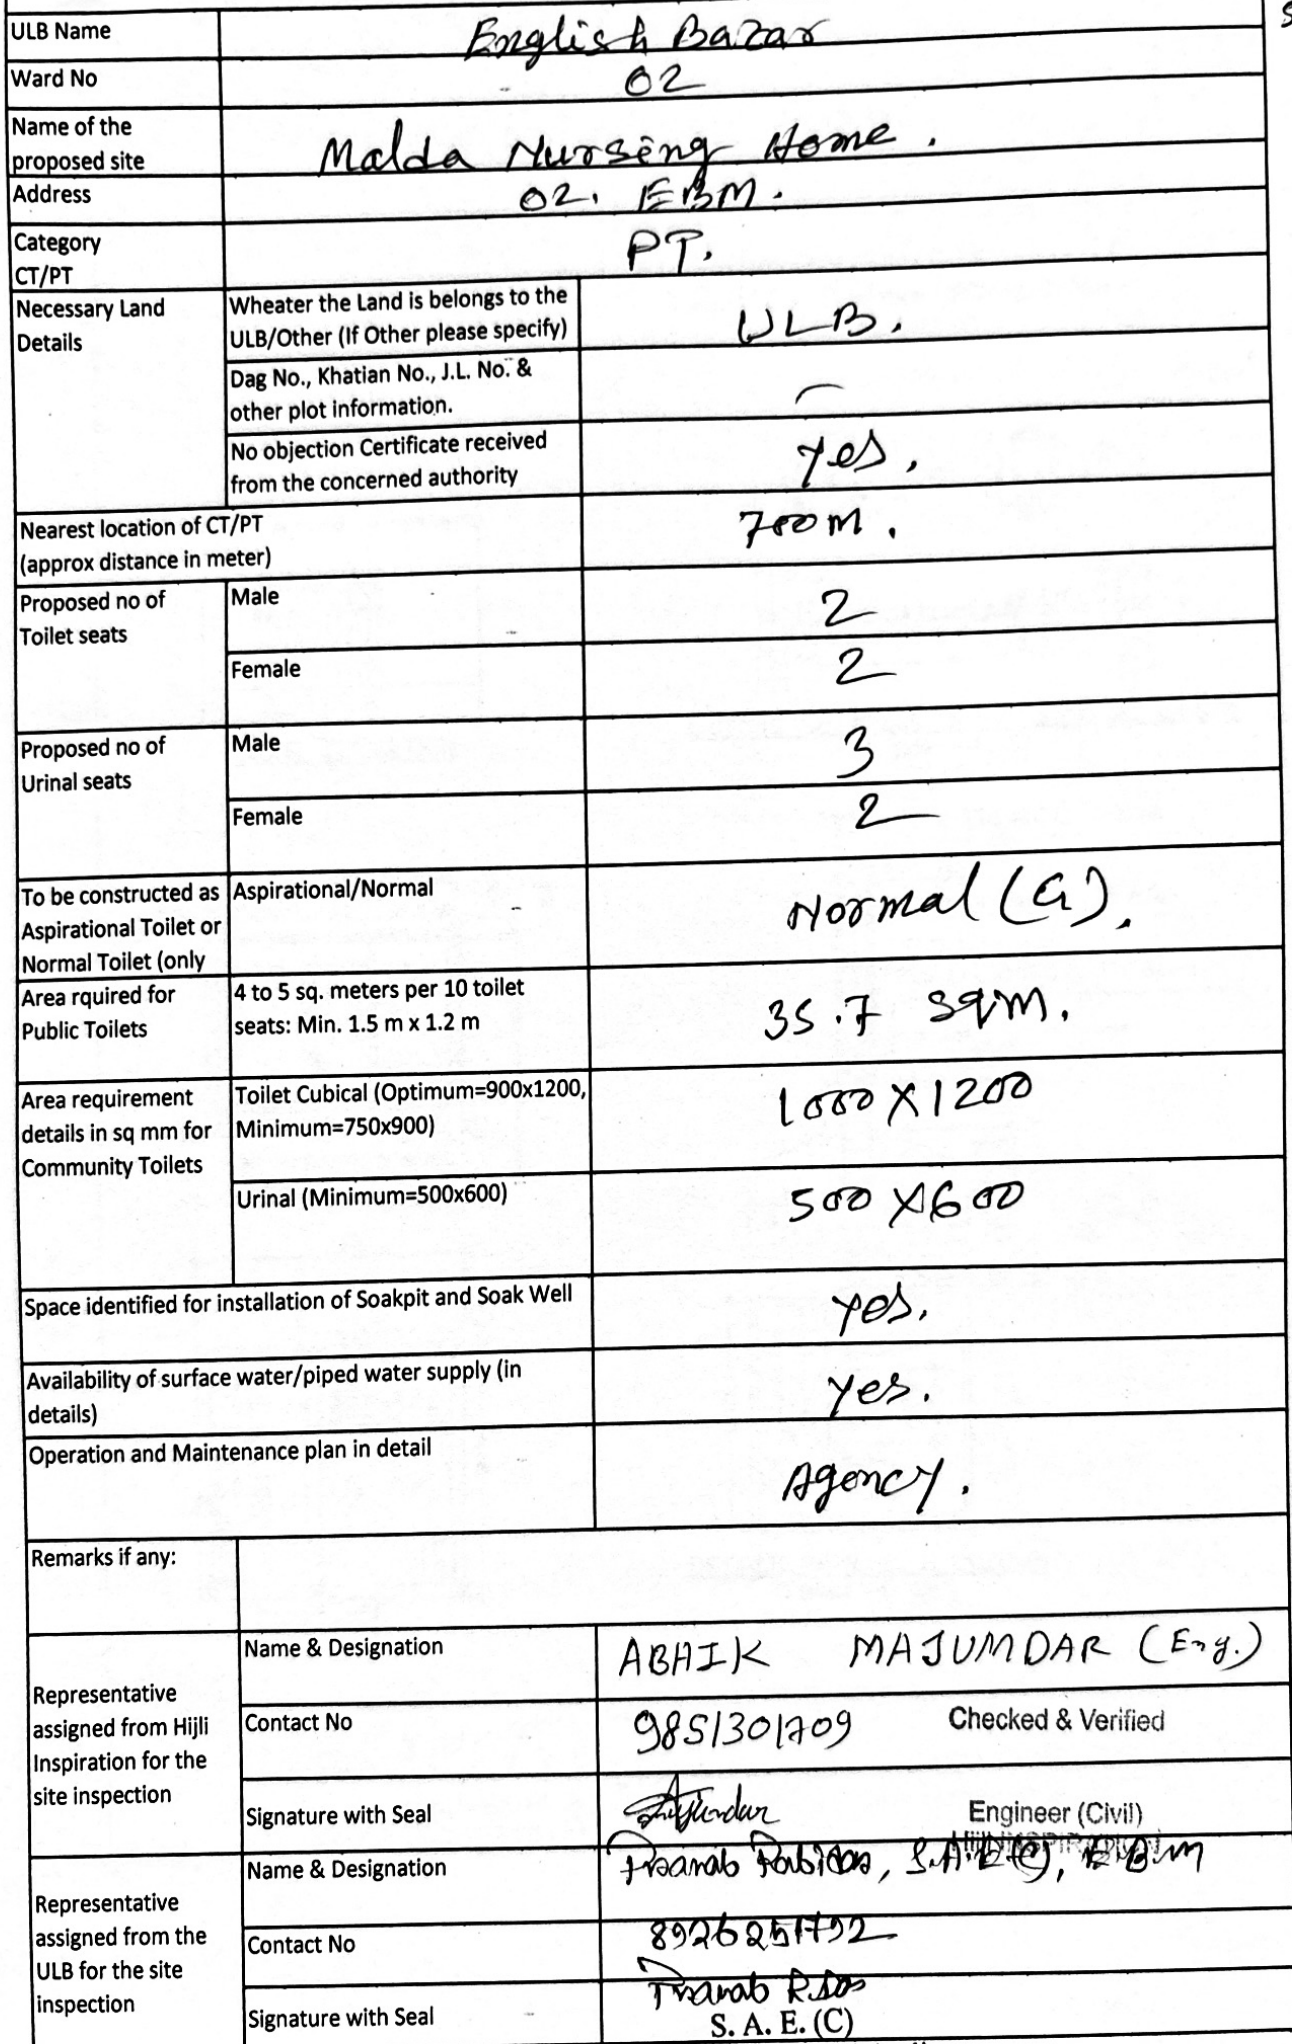 ULB Name English Bazar
Ward No 02
Name of the
proposed site Malda Nursing Home.
Address 02. EBM.
Category
CT/PT PT.
Necessary Land
Details
Wheater the Land is belongs to the
ULB/Other (If Other please specify) ULB.
Dag No., Khatian No., J.L. No. &
other plot information.
No objection Certificate received
from the concerned authority yes,
Nearest location of CT/PT
(approx distance in meter) 700m.
Proposed no of
Toilet seats
Male 2
Female 2
Proposed no of
Urinal seats
Male 3
Female 2
To be constructed as
Aspirational Toilet or
Normal Toilet (only
Aspirational/Normal Normal (G).
Area rquired for
Public Toilets
4 to 5 sq. meters per 10 toilet
seats: Min. 1.5 m x 1.2 m 35.7 sqm.
Area requirement
details in sq mm for
Community Toilets
Toilet Cubical (Optimum=900x1200,
Minimum=750x900) 1000X1200
Urinal (Minimum=500x600) 500X600
Space identified for installation of Soakpit and Soak Well yes.
Availability of surface water/piped water supply (in
details) yes.
Operation and Maintenance plan in detail Agency.
Remarks if any:
Representative
assigned from Hijli
Inspiration for the
site inspection
Name & Designation ABHIK MAJUMDAR (Eng.)
Contact No 9851301709 Checked & Verified
Signature with Seal Engineer (Civil)
Representative
assigned from the
ULB for the site
inspection
Name & Designation Pranab Rabidas, S.A.E(C), EBM
Contact No 8926251792
Signature with Seal Pranab R.das
S. A. E. (C)